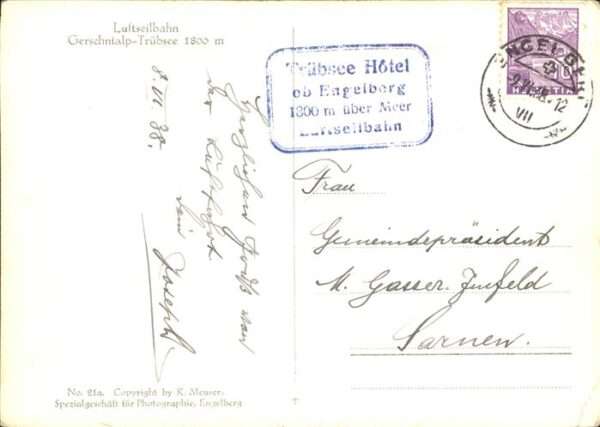 Luftseilbahn
Gerschnialp-Trübsee 1800 m
8. VI. 38.
Herzlichen Gruß von
der Luftfahrt
dein Joseph
Trübsee Hôtel
ob Engelberg
1800 m über Meer
Luftseilbahn
ENGELBERG
VII
10
HELVETIA
Frau
Gemeindepräsident
M. Gasser-Imfeld
Sarnen.
No. 21a. Copyright by K. Meuser,
Spezialgeschäft für Photographie, Engelberg